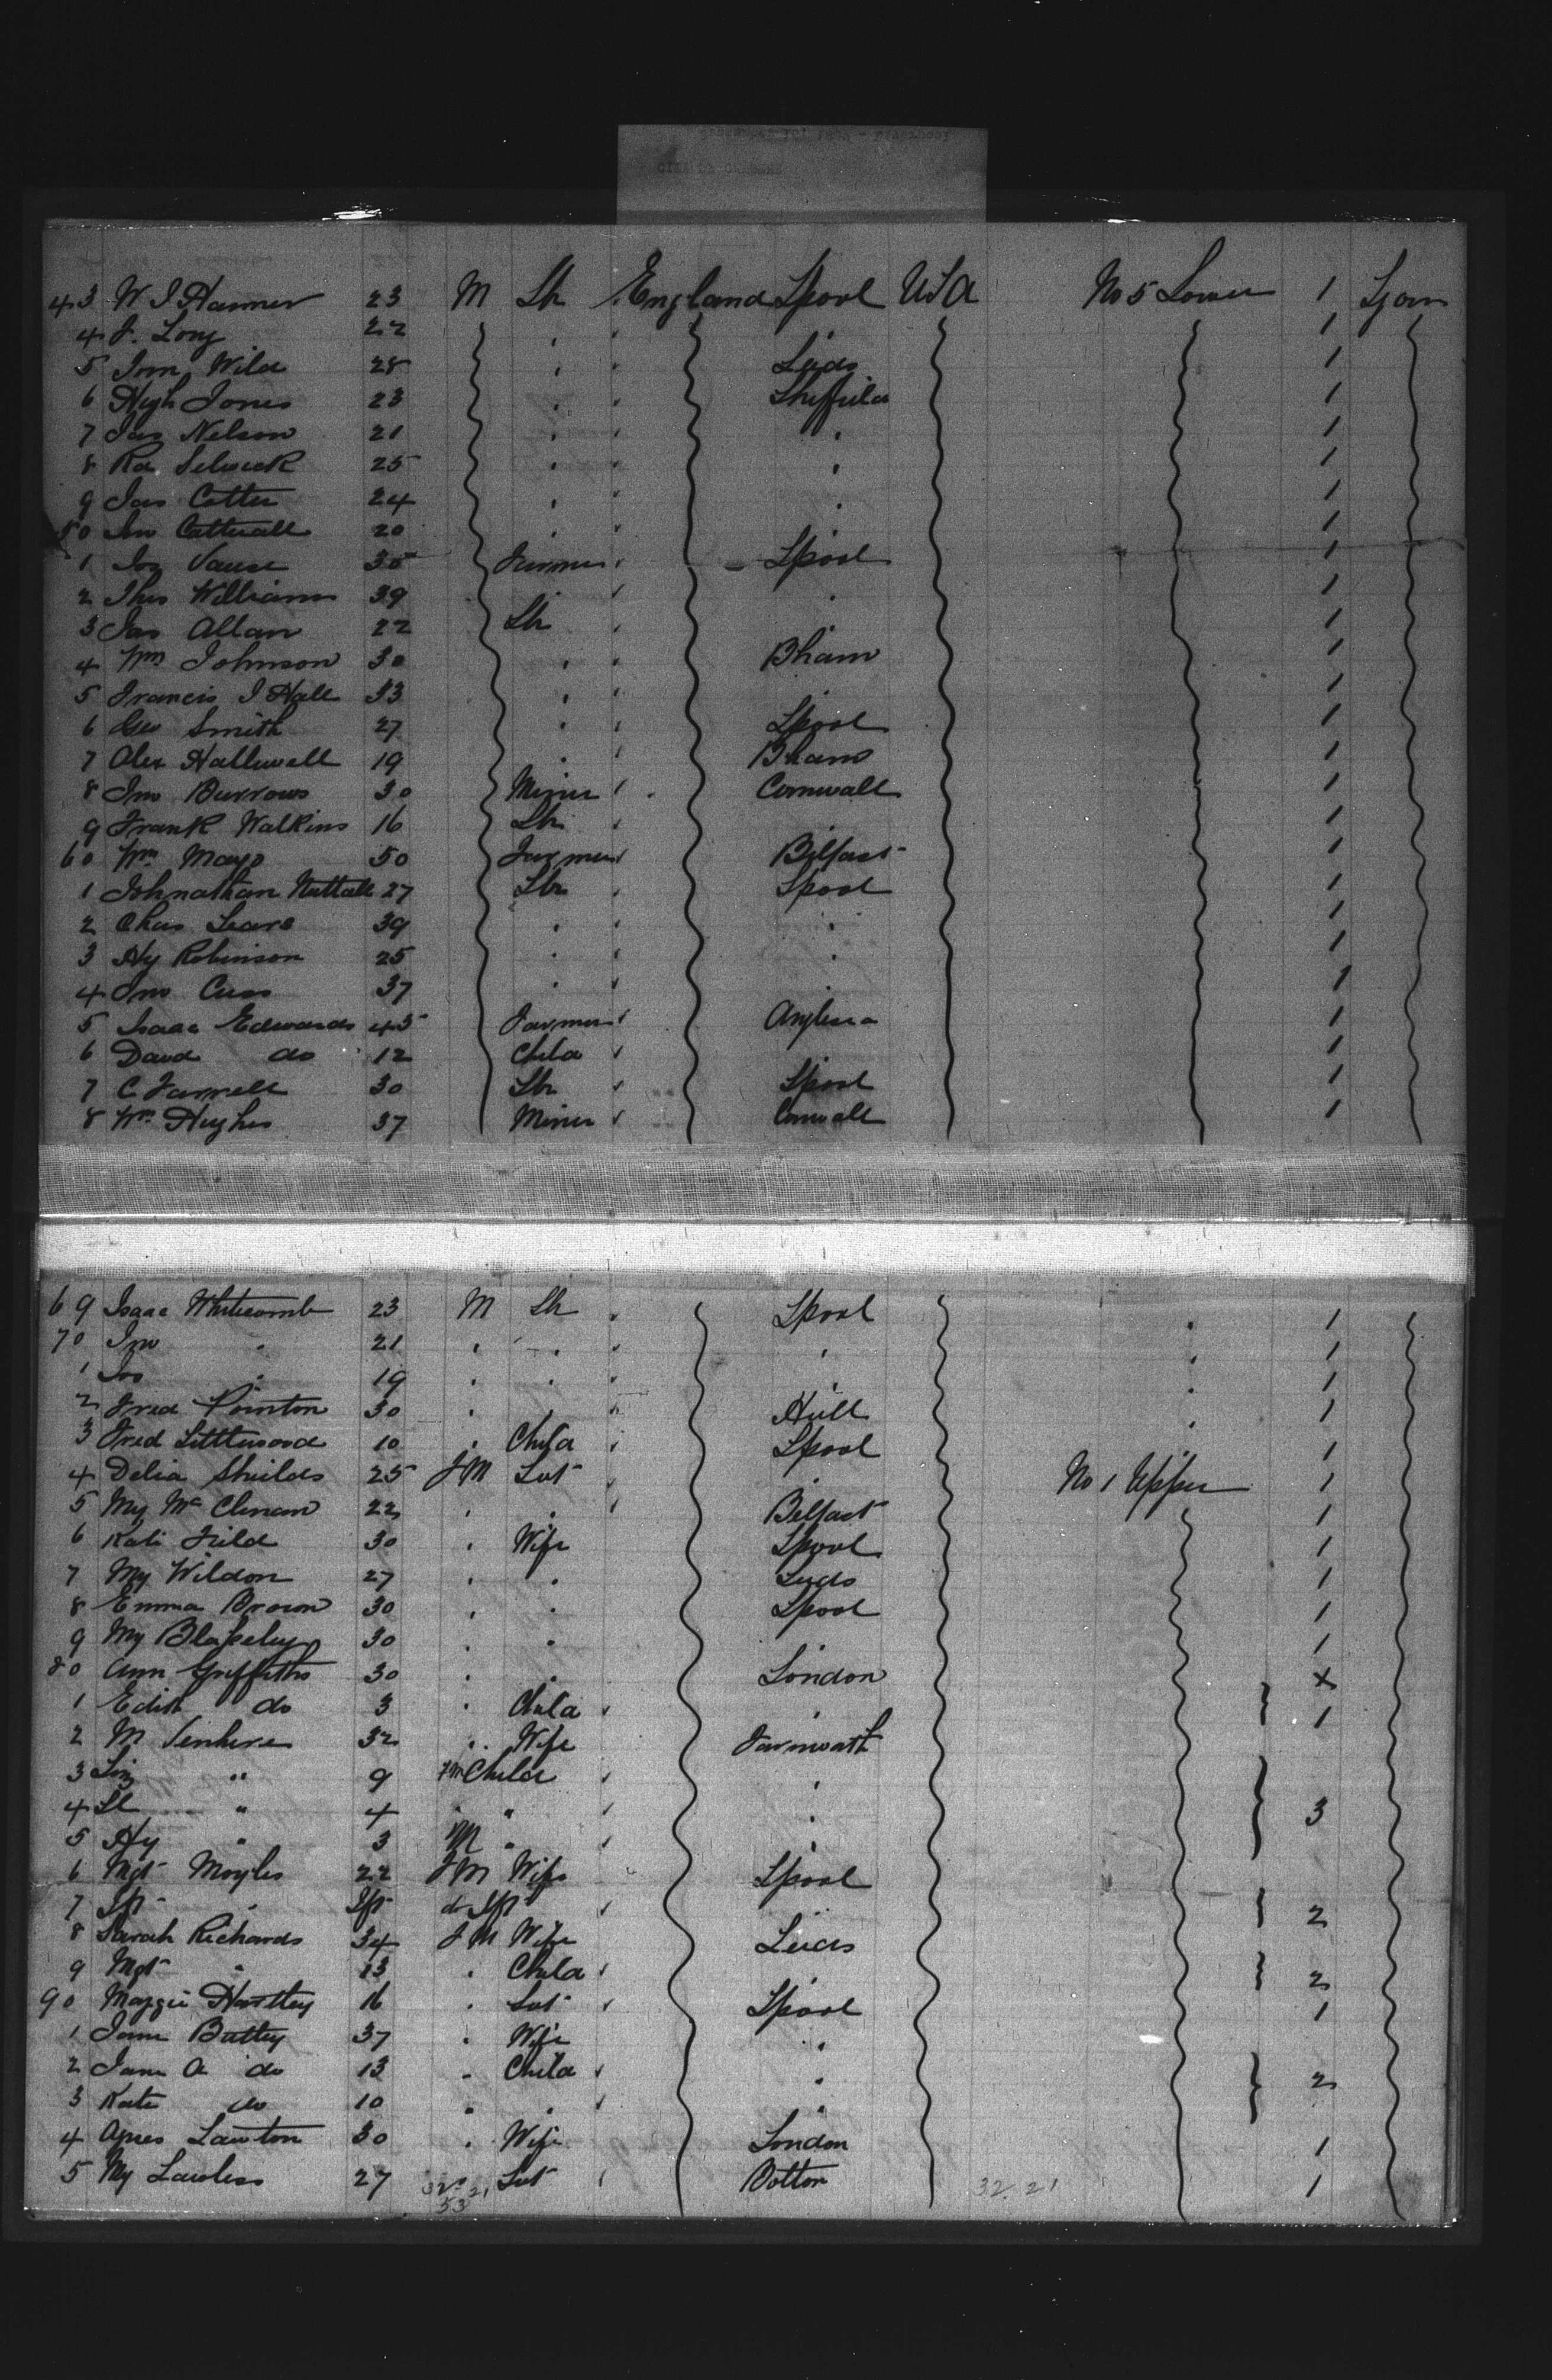 43 W J Hanmer 23 M Lbr England Lpool USA No 5 Lower 1
4 J. Long 22 1
5 Jno Wild 28 Leeds 1
6 Hgh Jones 23 Sheffield 1
7 Jas Nelson 21 1
8 Rd 25 1
9 Jas Cotter 24 1
50 Jno Catterall 20 1
1 Jos Vause 35 Farmer Lpool 1
2 Thos Williams 39 1
3 Jas Allan 22 Lbr 1
4 Wm Johnson 30 Bham 1
5 Francis J Hall 33 1
6 Geo Smith 27 Lpool 1
7 Alex Halliwell 19 Bham 1
8 Jno Burrows 30 Miner Cornwall 1
9 Frank Watkins 16 Lbr 1
60 Wm Mayo 50 Farmer Belfast 1
1 Johnathan Nuttall 27 Lbr Lpool 1
2 Chas 39 1
3 Hy Robinson 25 1
4 Jno Cuss 37 1
5 Isaac Edwards 45 Farmer Anglesea 1
6 David do 12 Child 1
7 C Farrell 30 Lbr Lpool 1
8 Wm Hughes 37 Miner Cornwall 1
69 Isaac Whitcomb 23 M Lbr Lpool 1
70 Jno " 21 1
1 Jos " 19 1
2 Fred Pointon 30 Hull 1
3 Fred Littlewood 10 Child Lpool 1
4 Delia Shields 25 FM Svt No 1 Upper 1
5 My Mc Clenan 22 Belfast 1
6 Kate Field 30 Wife Lpool 1
7 My Wildon 27 Leeds 1
8 Emma Brown 30 Lpool 1
9 My Blakeley 30 1
80 Ann Griffiths 30 London x
1 Edith do 3 Child 1
2 M 32 Wife Farnworth
3 Liz " 9 FM Child
4 " 4 " 3
5 Hy " 3 M "
6 Mgt Moyles 22 FM Wife Lpool
7 Ift " Ift do Ift 2
8 Sarah Richards 34 FM Wife Leeds
9 Mgt " 13 Child 2
90 Maggie Hartley 16 Svt Lpool 1
1 Jane Battey 37 Wife
2 Jane A do 13 Child 2
3 Kate do 10
4 Agnes Lawton 30 Wife London 1
5 My Lawless 27 Svt Bolton 1
32 21 32 21
53